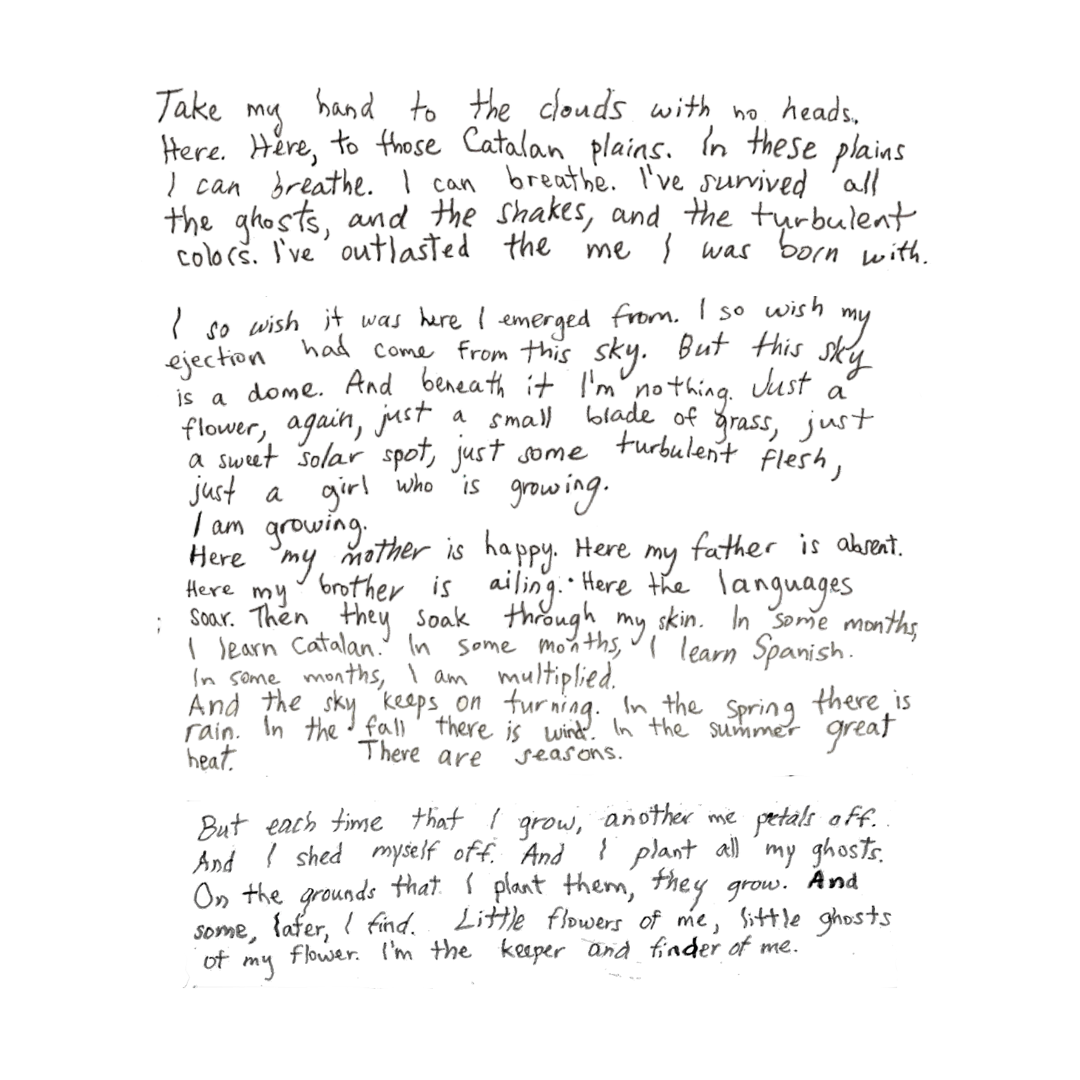 Take my hand to the clouds with no heads.
Here. Here, to those Catalan plains. In these plains
I can breathe. I can breathe. I've survived all
the ghosts, and the shakes, and the turbulent
colors. I've outlasted the me I was born with.
I so wish it was here I emerged from. I so wish my
ejection had come from this sky. But this sky
is a dome. And beneath it I'm nothing. Just a
flower, again, just a small blade of grass, just
a sweet solar spot, just some turbulent flesh,
just a girl who is growing.
I am growing.
Here my mother is happy. Here my father is absent.
Here my brother is ailing. Here the languages
soar. Then they soak through my skin. In some months,
I learn Catalan. In some months, I learn Spanish.
In some months, I am multiplied.
And the sky keeps on turning. In the spring there is
rain. In the fall there is wind. In the summer great
heat. There are seasons.
But each time that I grow, another me petals off.
And I shed myself off. And I plant all my ghosts.
On the grounds that I plant them, they grow. And
some, later, I find. Little flowers of me, little ghosts
of my flower. I'm the keeper and finder of me.